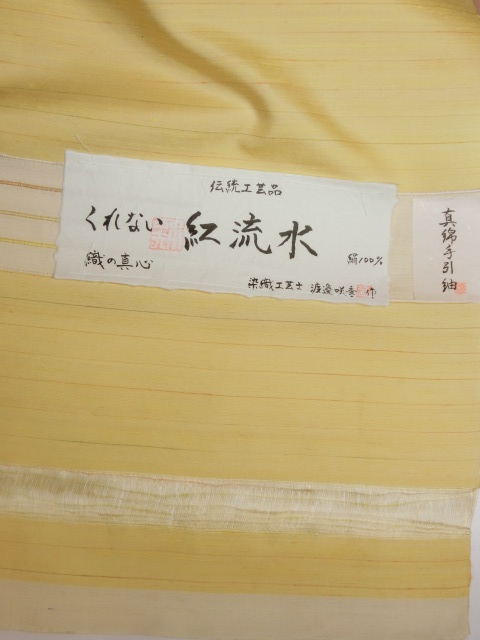 伝統工芸品
くれない 紅流水
織の真心 絹100%
染織工芸士 渡邉咲香 作
真綿手引紬